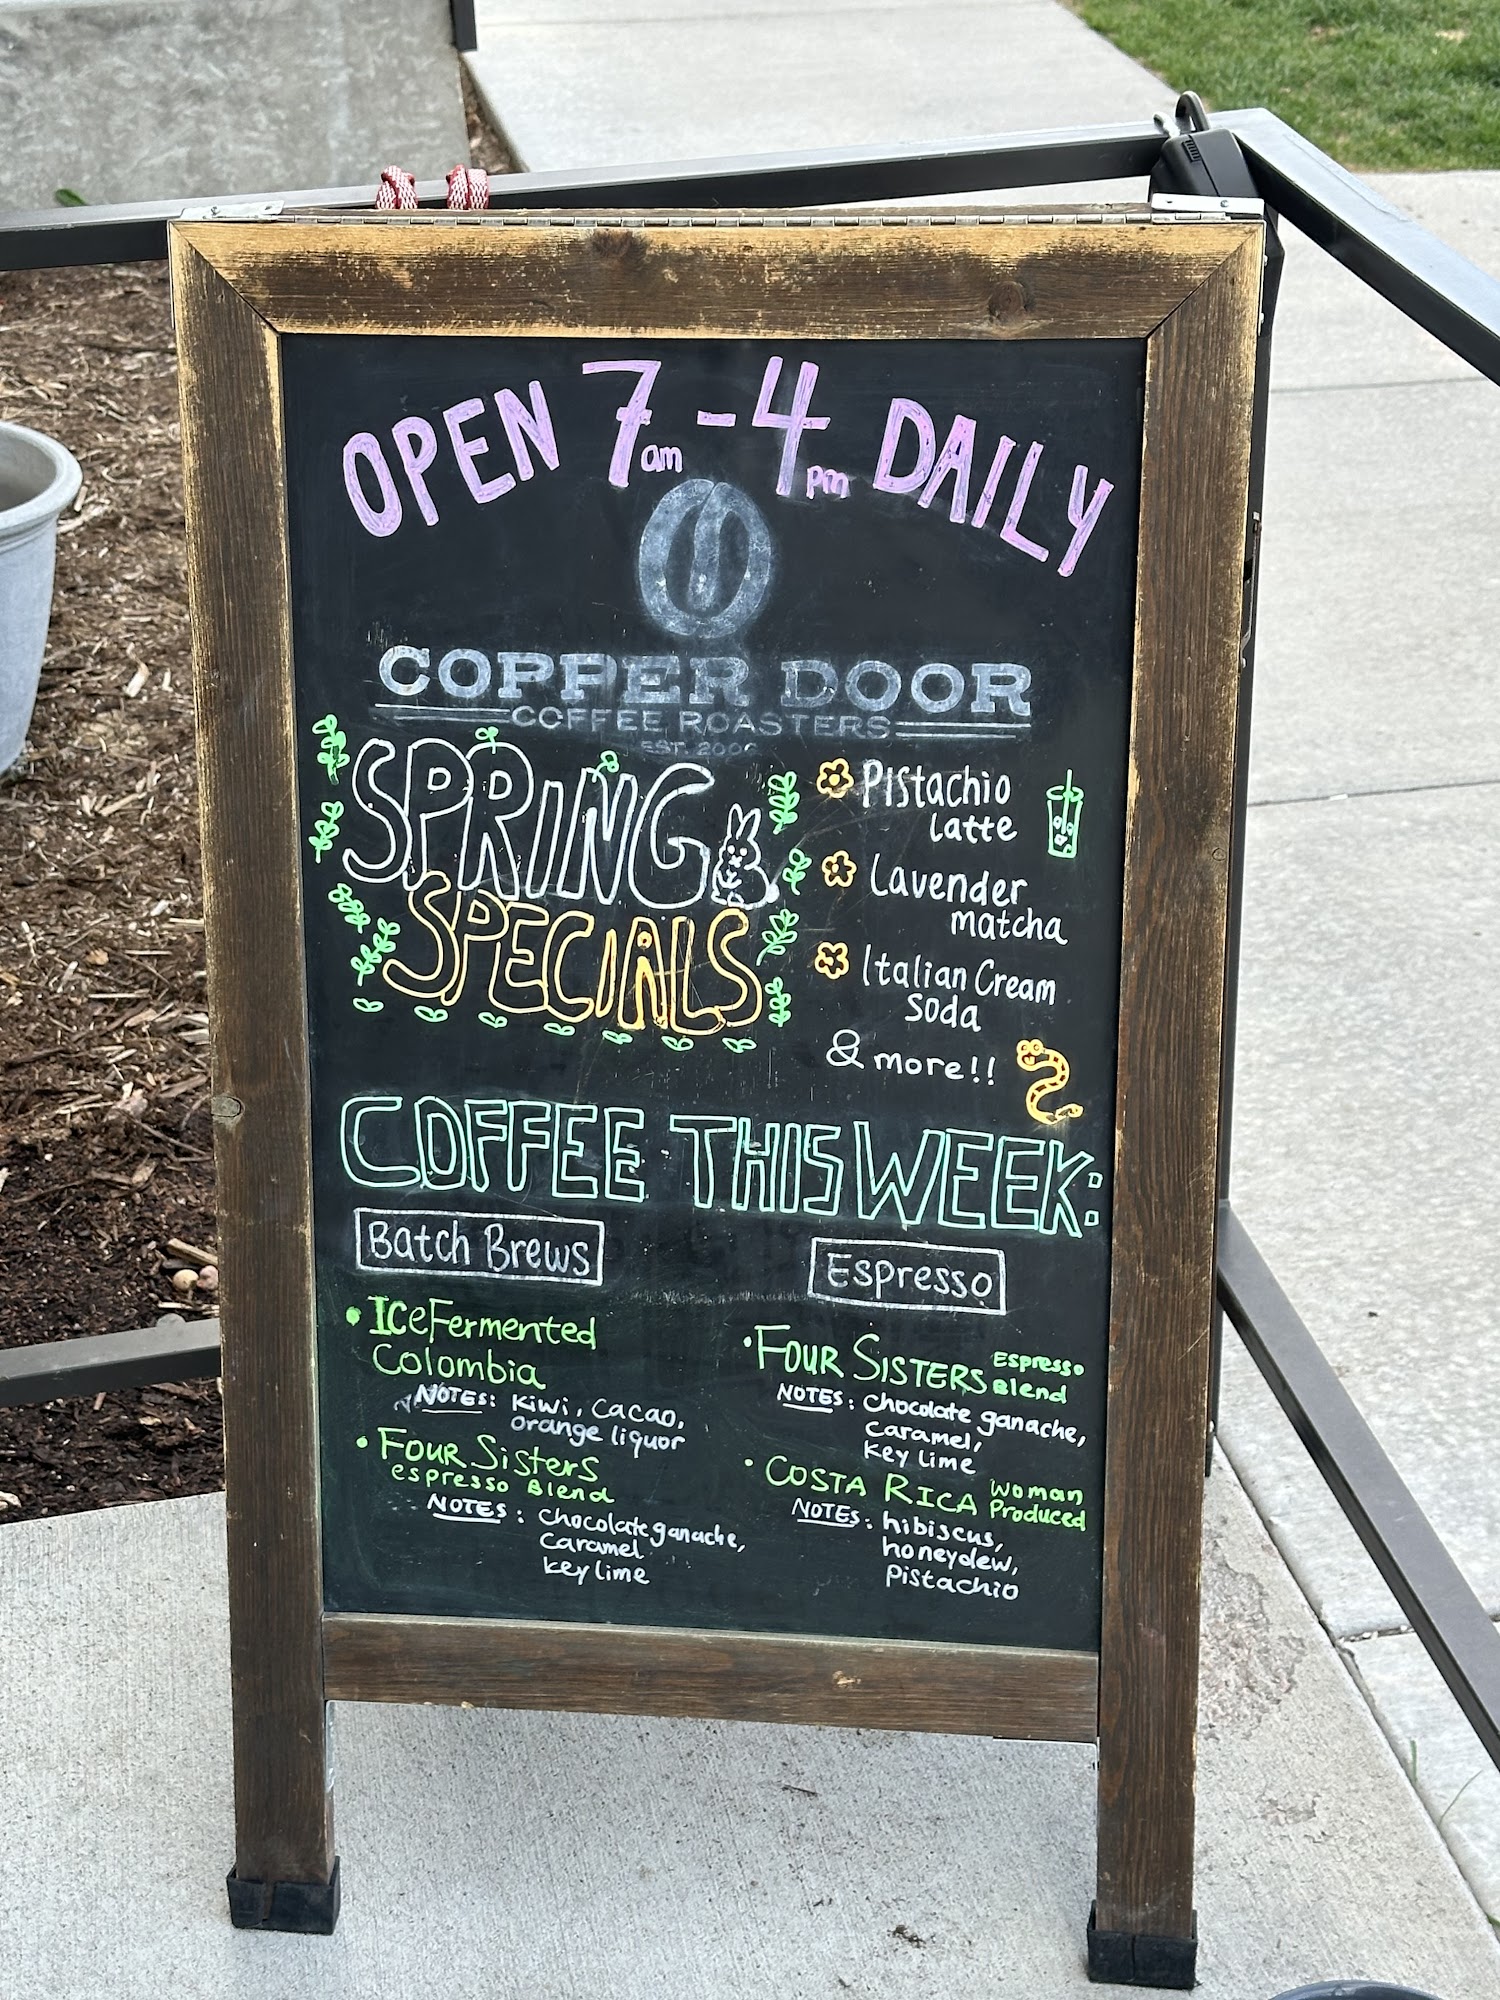 OPEN 7am - 4pm DAILY
COPPER DOOR
COFFEE ROASTERS
EST.
SPRING
SPECIALS
Pistachio
Latte
Lavender
matcha
Italian Cream
Soda
& more!!
COFFEE THIS WEEK:
Batch Brews
ICe Fermented
Colombia
NOTES: Kiwi, Cacao,
orange liquor
FOUR SisterS
espresso Blend
NOTES: chocolate ganache,
Caramel
key lime
Espresso
FOUR SISTERS Espresso
Blend
NOTES: chocolate ganache,
Caramel,
key lime
COSTA RICA Woman
Produced
NOTES: hibiscus,
honeydew,
Pistachio